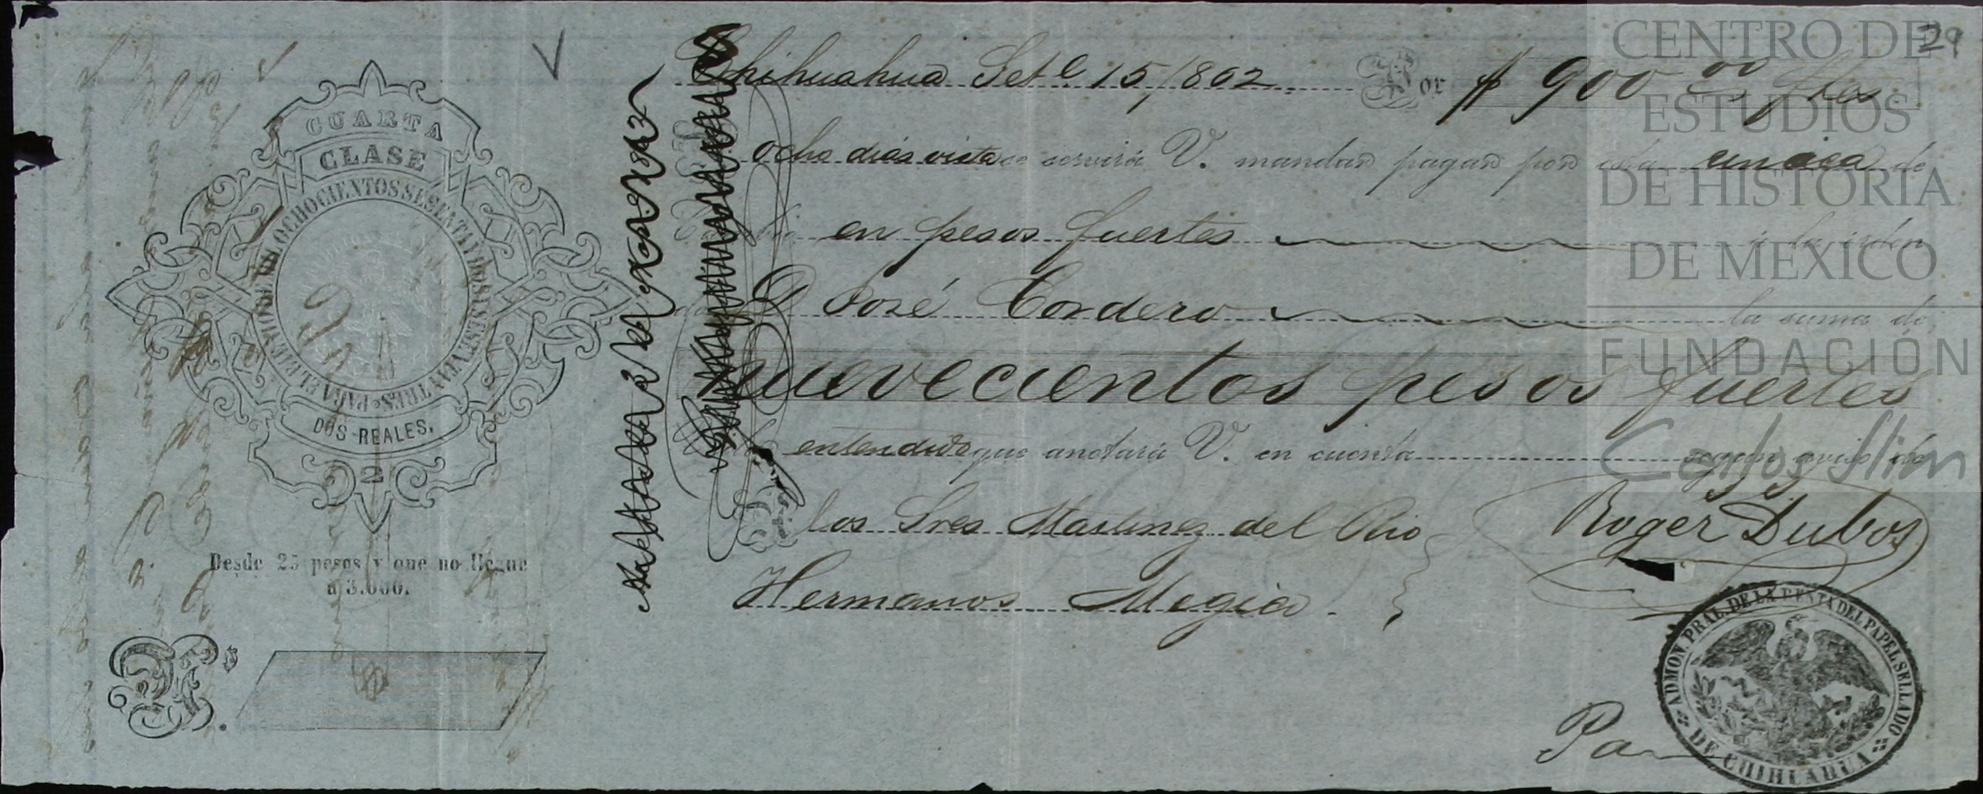 29
CUARTA
CLASE
PARA EL BIENIO DE MIL OCHOCIENTOS SESENTA Y DOS I SESENTA Y TRES
DOS REALES.
2
Desde 25 pesos y que no llegue
á 3.000.
Chihuahua Set.e 15, 1862. Por $ 900 00 Ftes
ocho dias vista se servirá V. mandar pagar por esta unica de
Cambio en pesos fuertes á la orden
de D. José Cordero la suma de
nuevecientos pesos fuertes
entendido que anotará V. en cuenta segun aviso de
S. S.
Los Sres Martinez del Rio
Hermanos Megico.
Roger Dubos
Pa
ADMON. PRAL. DE LA RENTA DEL PAPEL SELLADO
DE CHIHUAHUA
CENTRO DE
ESTUDIOS
DE HISTORIA
DE MEXICO
FUNDACIÓN
Carlos Slim